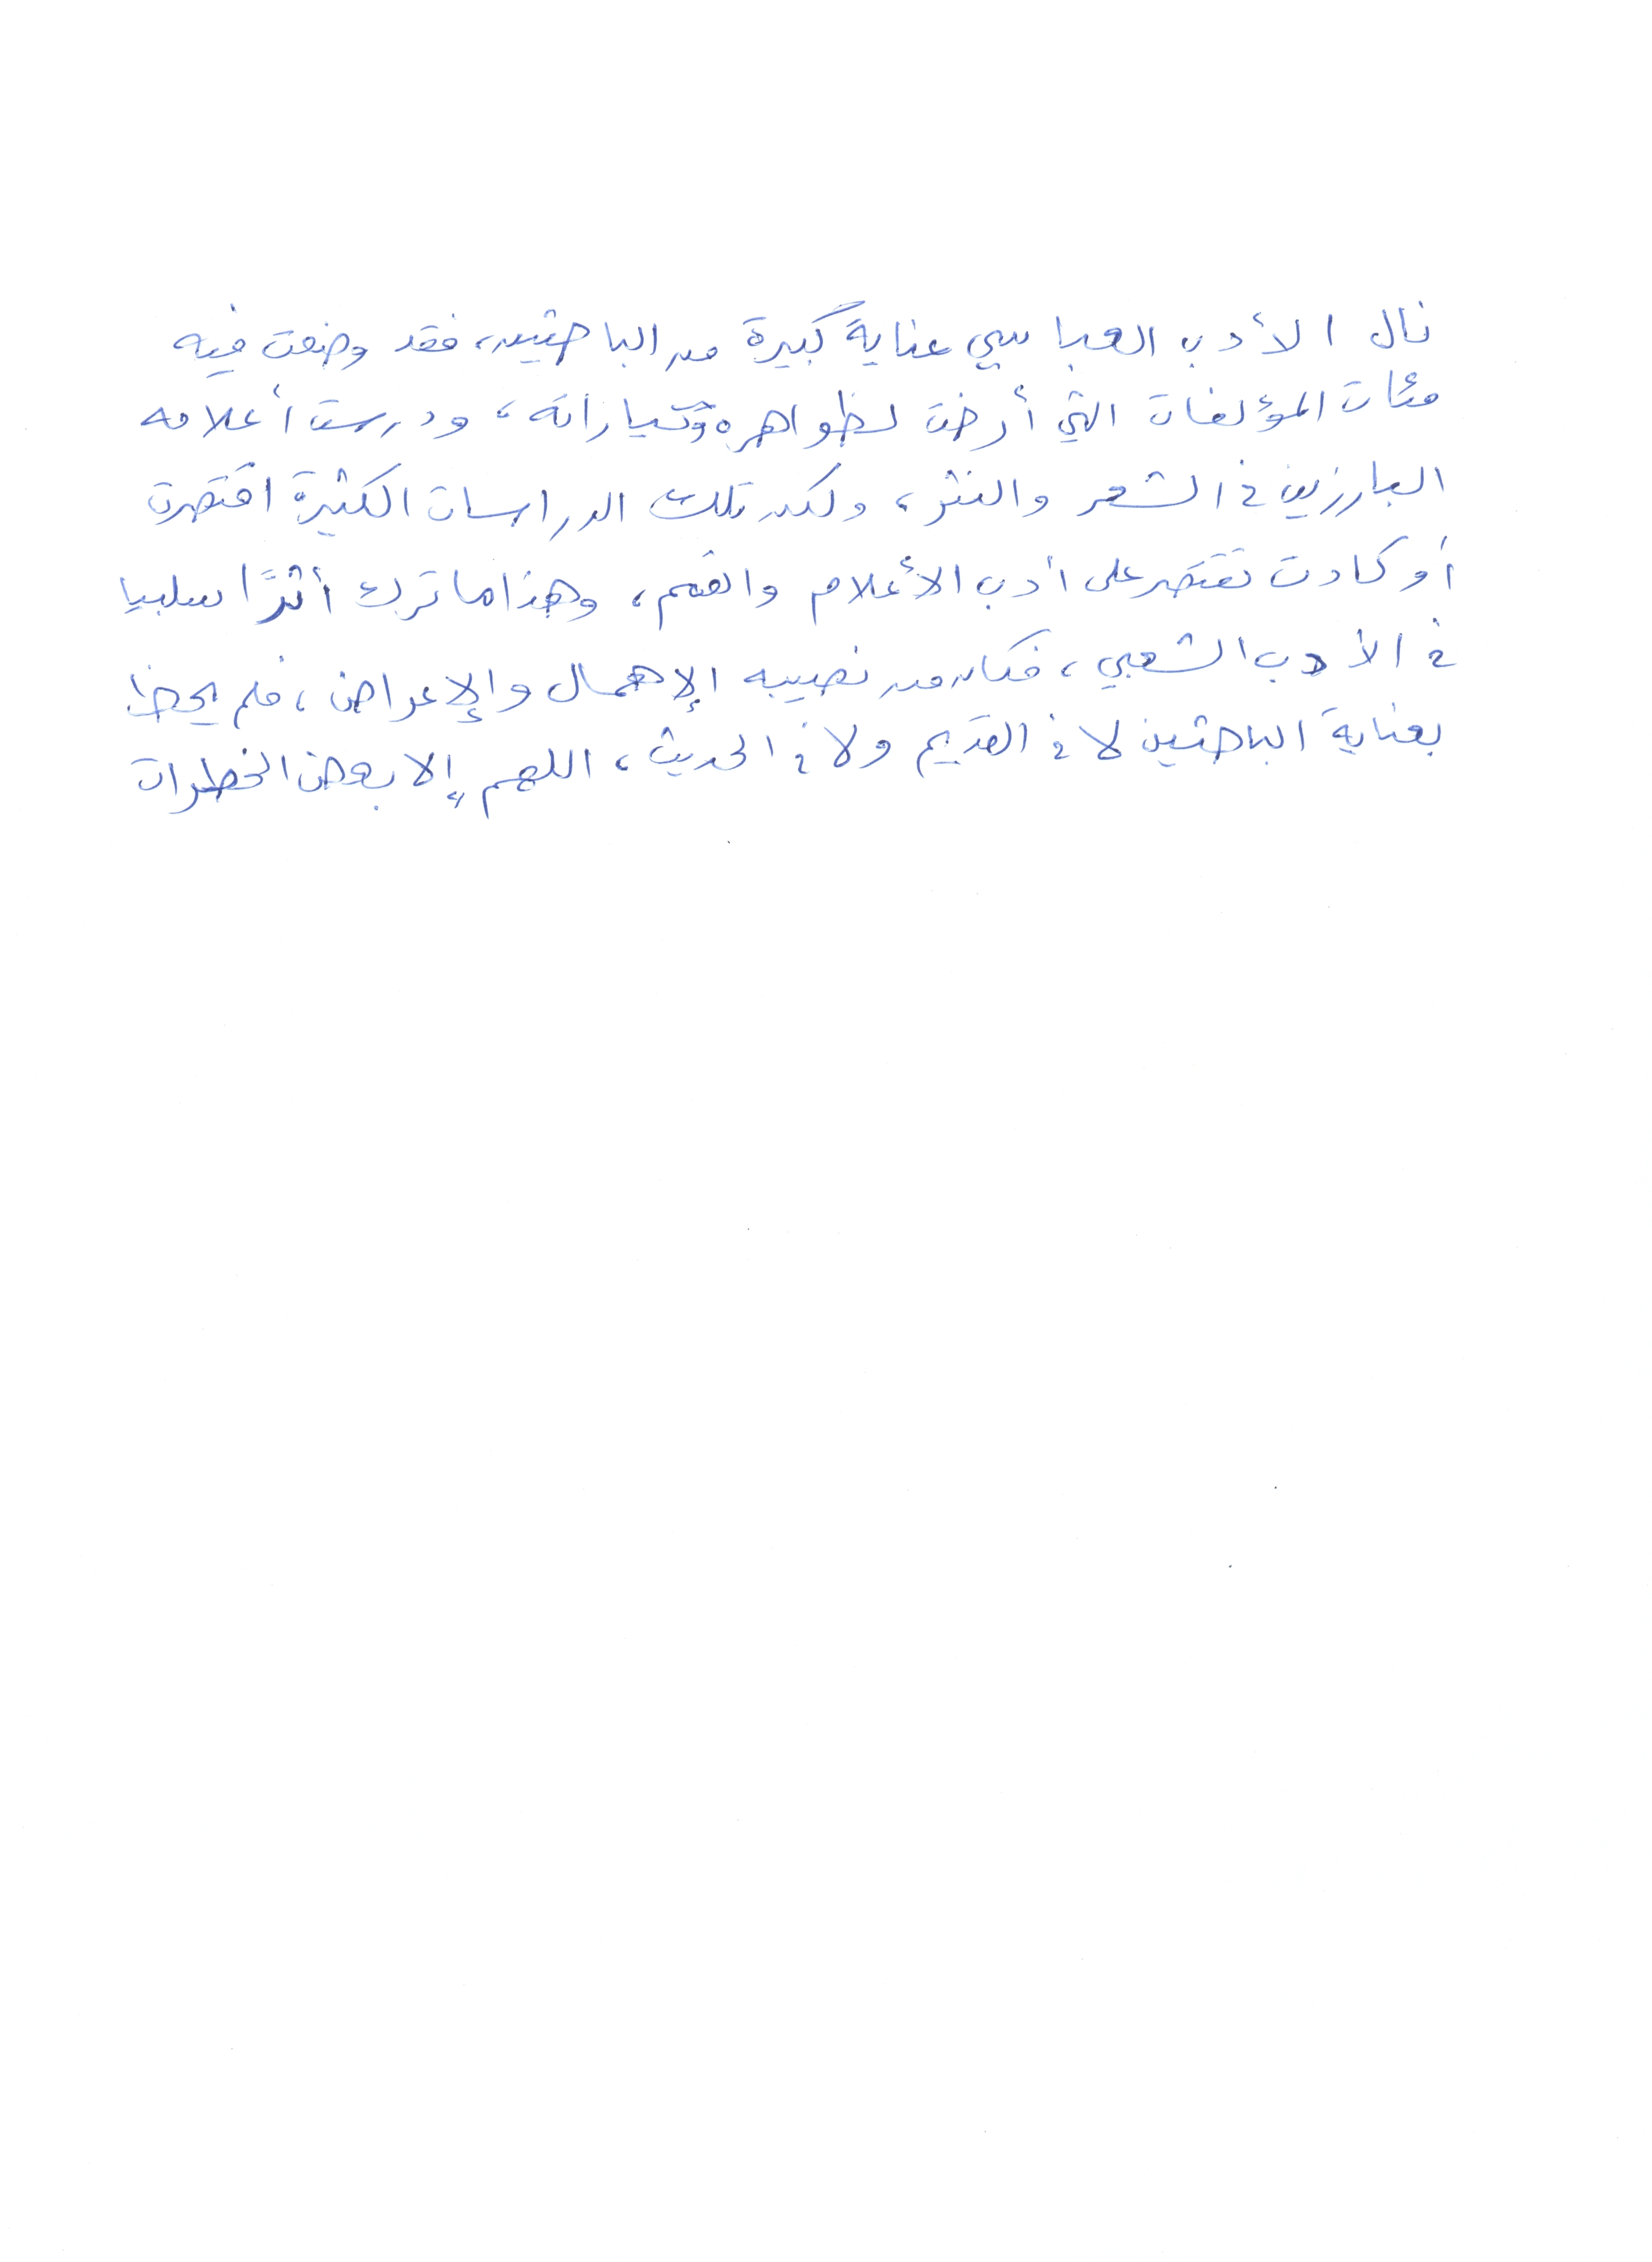 نال الأدب العباسي عنايةً كبيرة من الباحثين، فقد وضعت فيه
مئات المؤلفات التي أرخت لظواهره وتياراته، ودرست أعلامه
البارزين في الشعر والنثر، ولكن تلك الدراسات الكثيرة اقتصرت
أو كادت تقتصر على أدب الأعلام والقمم، وهذا ما ترك أثرًا سلبيا
في الأدب الشعبي، فكان من نصيبه الإهمال والإعراض، فلم يحظ
بعناية الباحثين لا في القديم ولا في الحديث، اللهم إلا بعض الخطرات